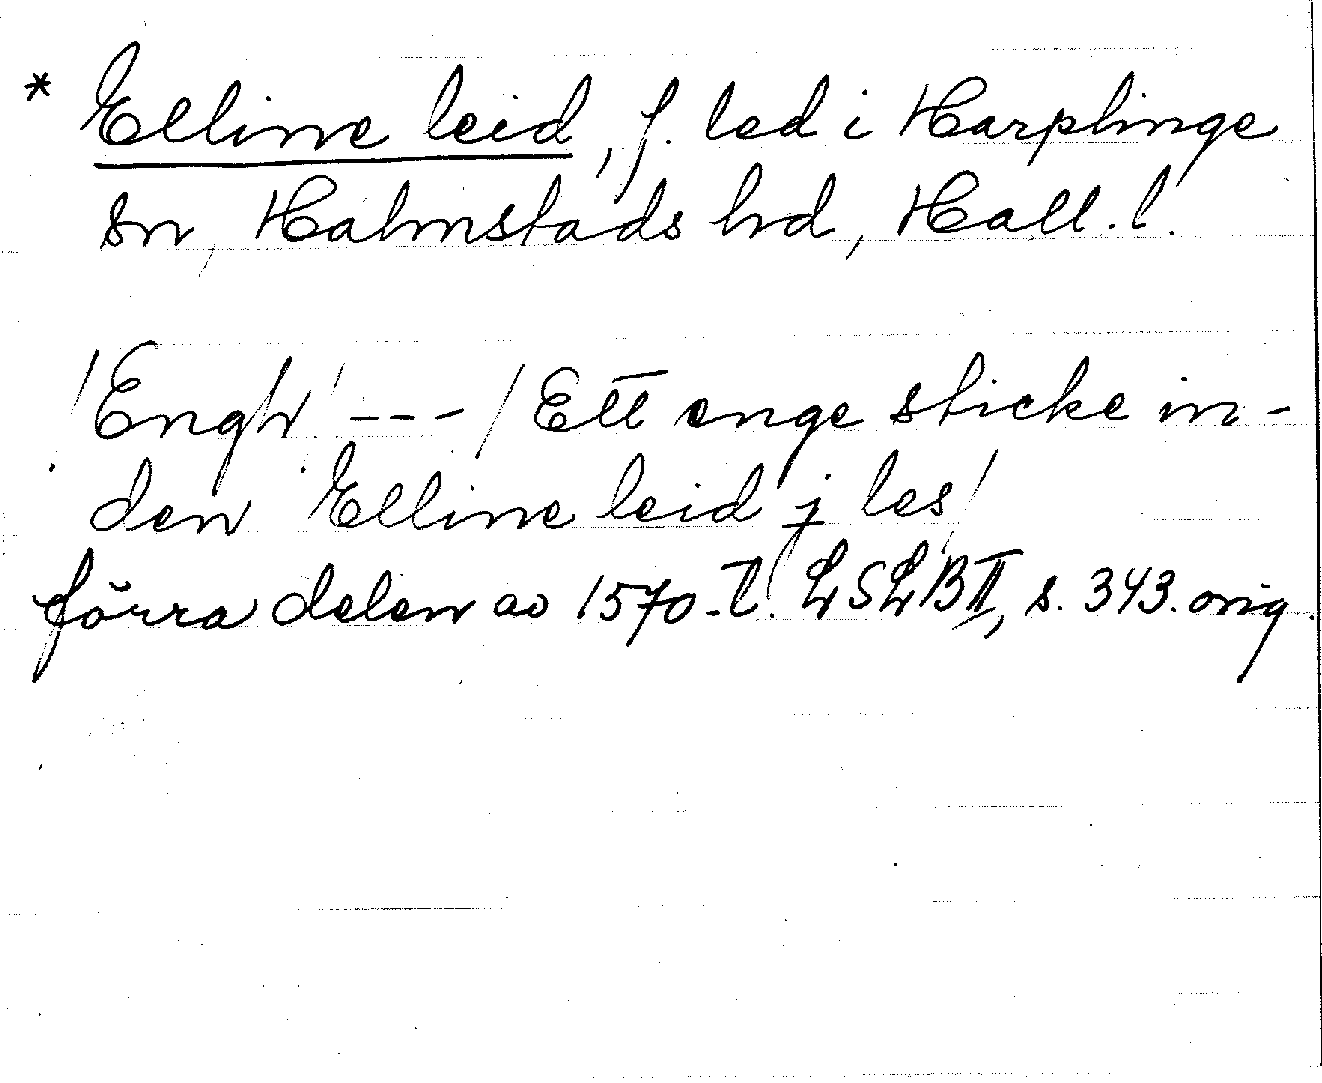 * Elline leid, f. led i Harplinge
sn, Halmstads hd, Hall. l.
/Engh/ --- / Ett enge sticke in-
den Elline leid j les/
förra delen av 1570-t. LSLB II, s. 343. orig.